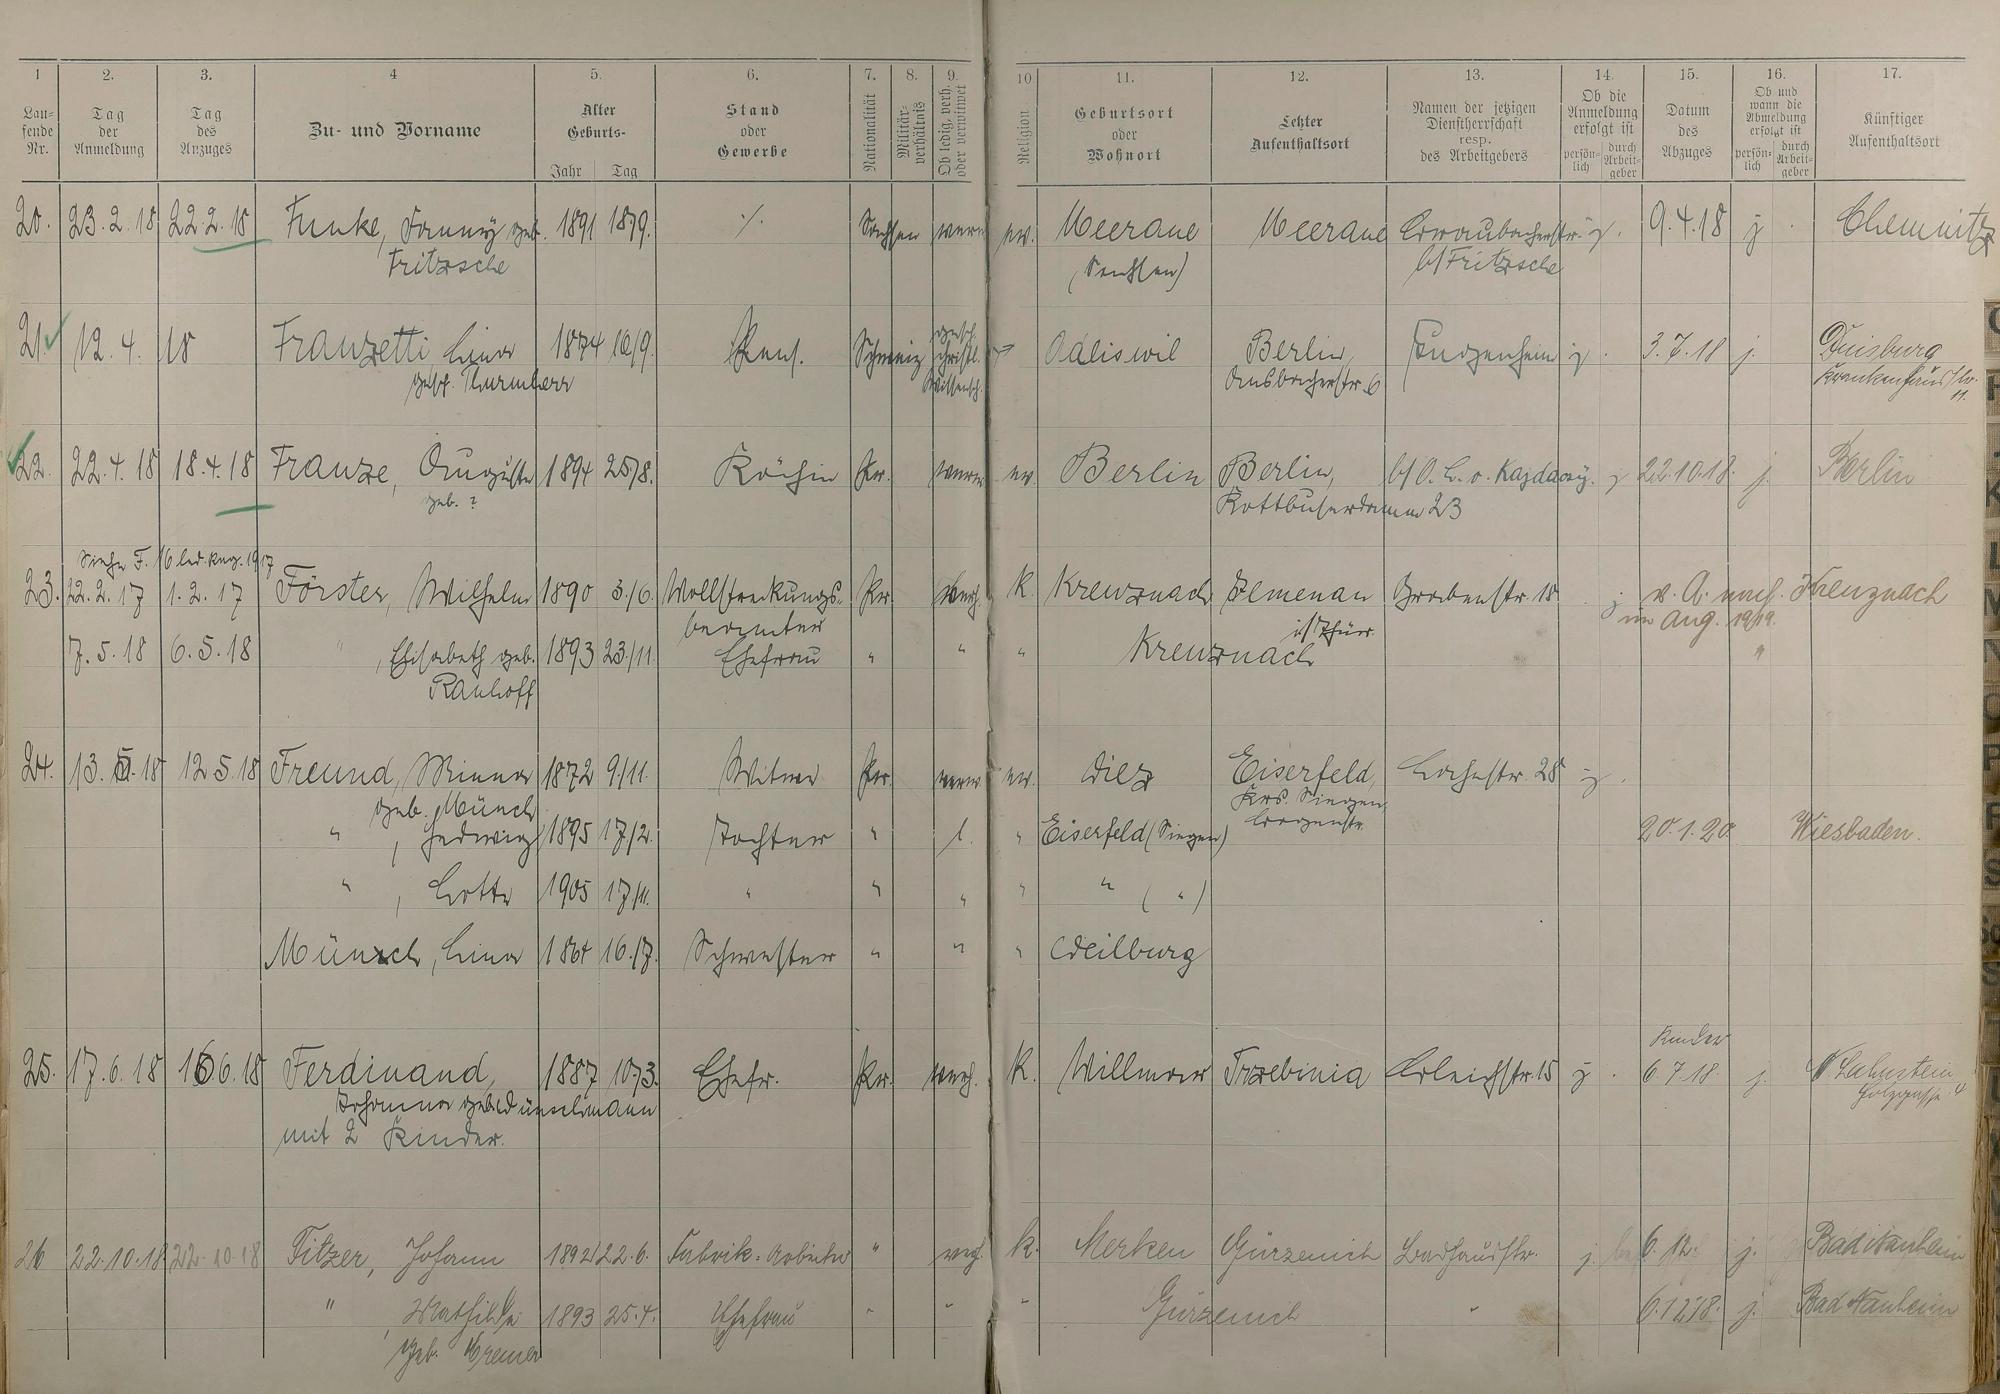 1 2. 3. 4 5. 6. 7. 8. 9. 10 11. 12. 13. 14. 15. 16. 17.
Lau-
fende
Nr.
Tag
der
Anmeldung
Tag
des
Anzuges
Zu- und Vorname
Alter
Geburts-
Jahr Tag
Stand
oder
Gewerbe
Nationalität
Militär-
verhältnis
Ob ledig, verh.
oder verwitwet
Religion
Geburtsort
oder
Wohnort
Letzter
Aufenthaltsort
Namen der jetzigen
Dienstherrschaft
resp.
des Arbeitgebers
Ob die
Anmeldung
erfolgt ist
persön-
lich
durch
Arbeit-
geber
Datum
des
Abzuges
Ob und
wann die
Abmeldung
erfolgt ist
persön-
lich
durch
Arbeit-
geber
Künftiger
Aufenthaltsort
20. 23.2.18 22.2.18 Funke, Fanny geb. 1891 18/9. ·/. Sachsen verw. ev. Meerane Meerane j. 9.4.18 j Chemnitz
Fritzsche (Sachsen) b/ Fritzsche
21. 12.4. 18 Franzetti Lina 1874 16/9. Schweiz gesch. Adliswil Berlin, j. 3.7.18 j. Duisburg
christl.
gesch. Thurnherr Wissensch. Ansbacherstr. 6 Krankenhausstr.
11.
22. 22.4.18 18.4.18 Franze, Auguste 1894 25/8. Köchin Pr. ev. Berlin Berlin, b/ O. L. v. Kajdacsy. j 22.10.18. j. Berlin
geb. ? Kottbuserdamm 23
Siehe F. 16 led. Reg. 1917
23. 22.2.17 1.2.17 Förster, Wilhelm 1890 3./6. Vollstreckungs- Pr. verh. K. Kreuznach Ilmenau Grabenstr. 18 j v. A. nach Kreuznach
beamter i/ Thür. im Aug. 1919.
7.5.18 6.5.18 " , Elisabeth geb. 1893 23./11. Ehefrau " " " Kreuznach "
Rauhoff
24. 13.5.18 12.5.18 Freund, Minna 1872 9/11. Witwe Pr. verw. ev. Diez Eiserfeld, 28 j.
geb. Münch Krs. Siegen,
" , Hedwig 1895 17/2. Tochter " l. " Eiserfeld (Siegen) 20.1.20. Wiesbaden.
" , Lotte 1905 17/11. " " " " " ( " )
Münch, Lina 1864 16./7. Schwester " " " Weilburg
Kinder
25. 17.6.18 16.6.18 Ferdinand, 1887 10/3. Ehefr. Pr. verh. K. Willmar Trzebinia 15 j. 6.7.18. j. N. Lahnstein
Johanna geb. Wünschmann 4
mit 2 Kinder.
26 22.10.18 22.10.18 Fitzer, Johann 1892 22.6. Fabrik-Arbeiter " verh. K. Merken Gürzenich Badhausstr. j. 6.12. j. Bad Nauheim
" , Mathilde 1893 25.4. Ehefrau " " " Gürzenich " 6.12.18. j. Bad Nauheim
geb. Cremer